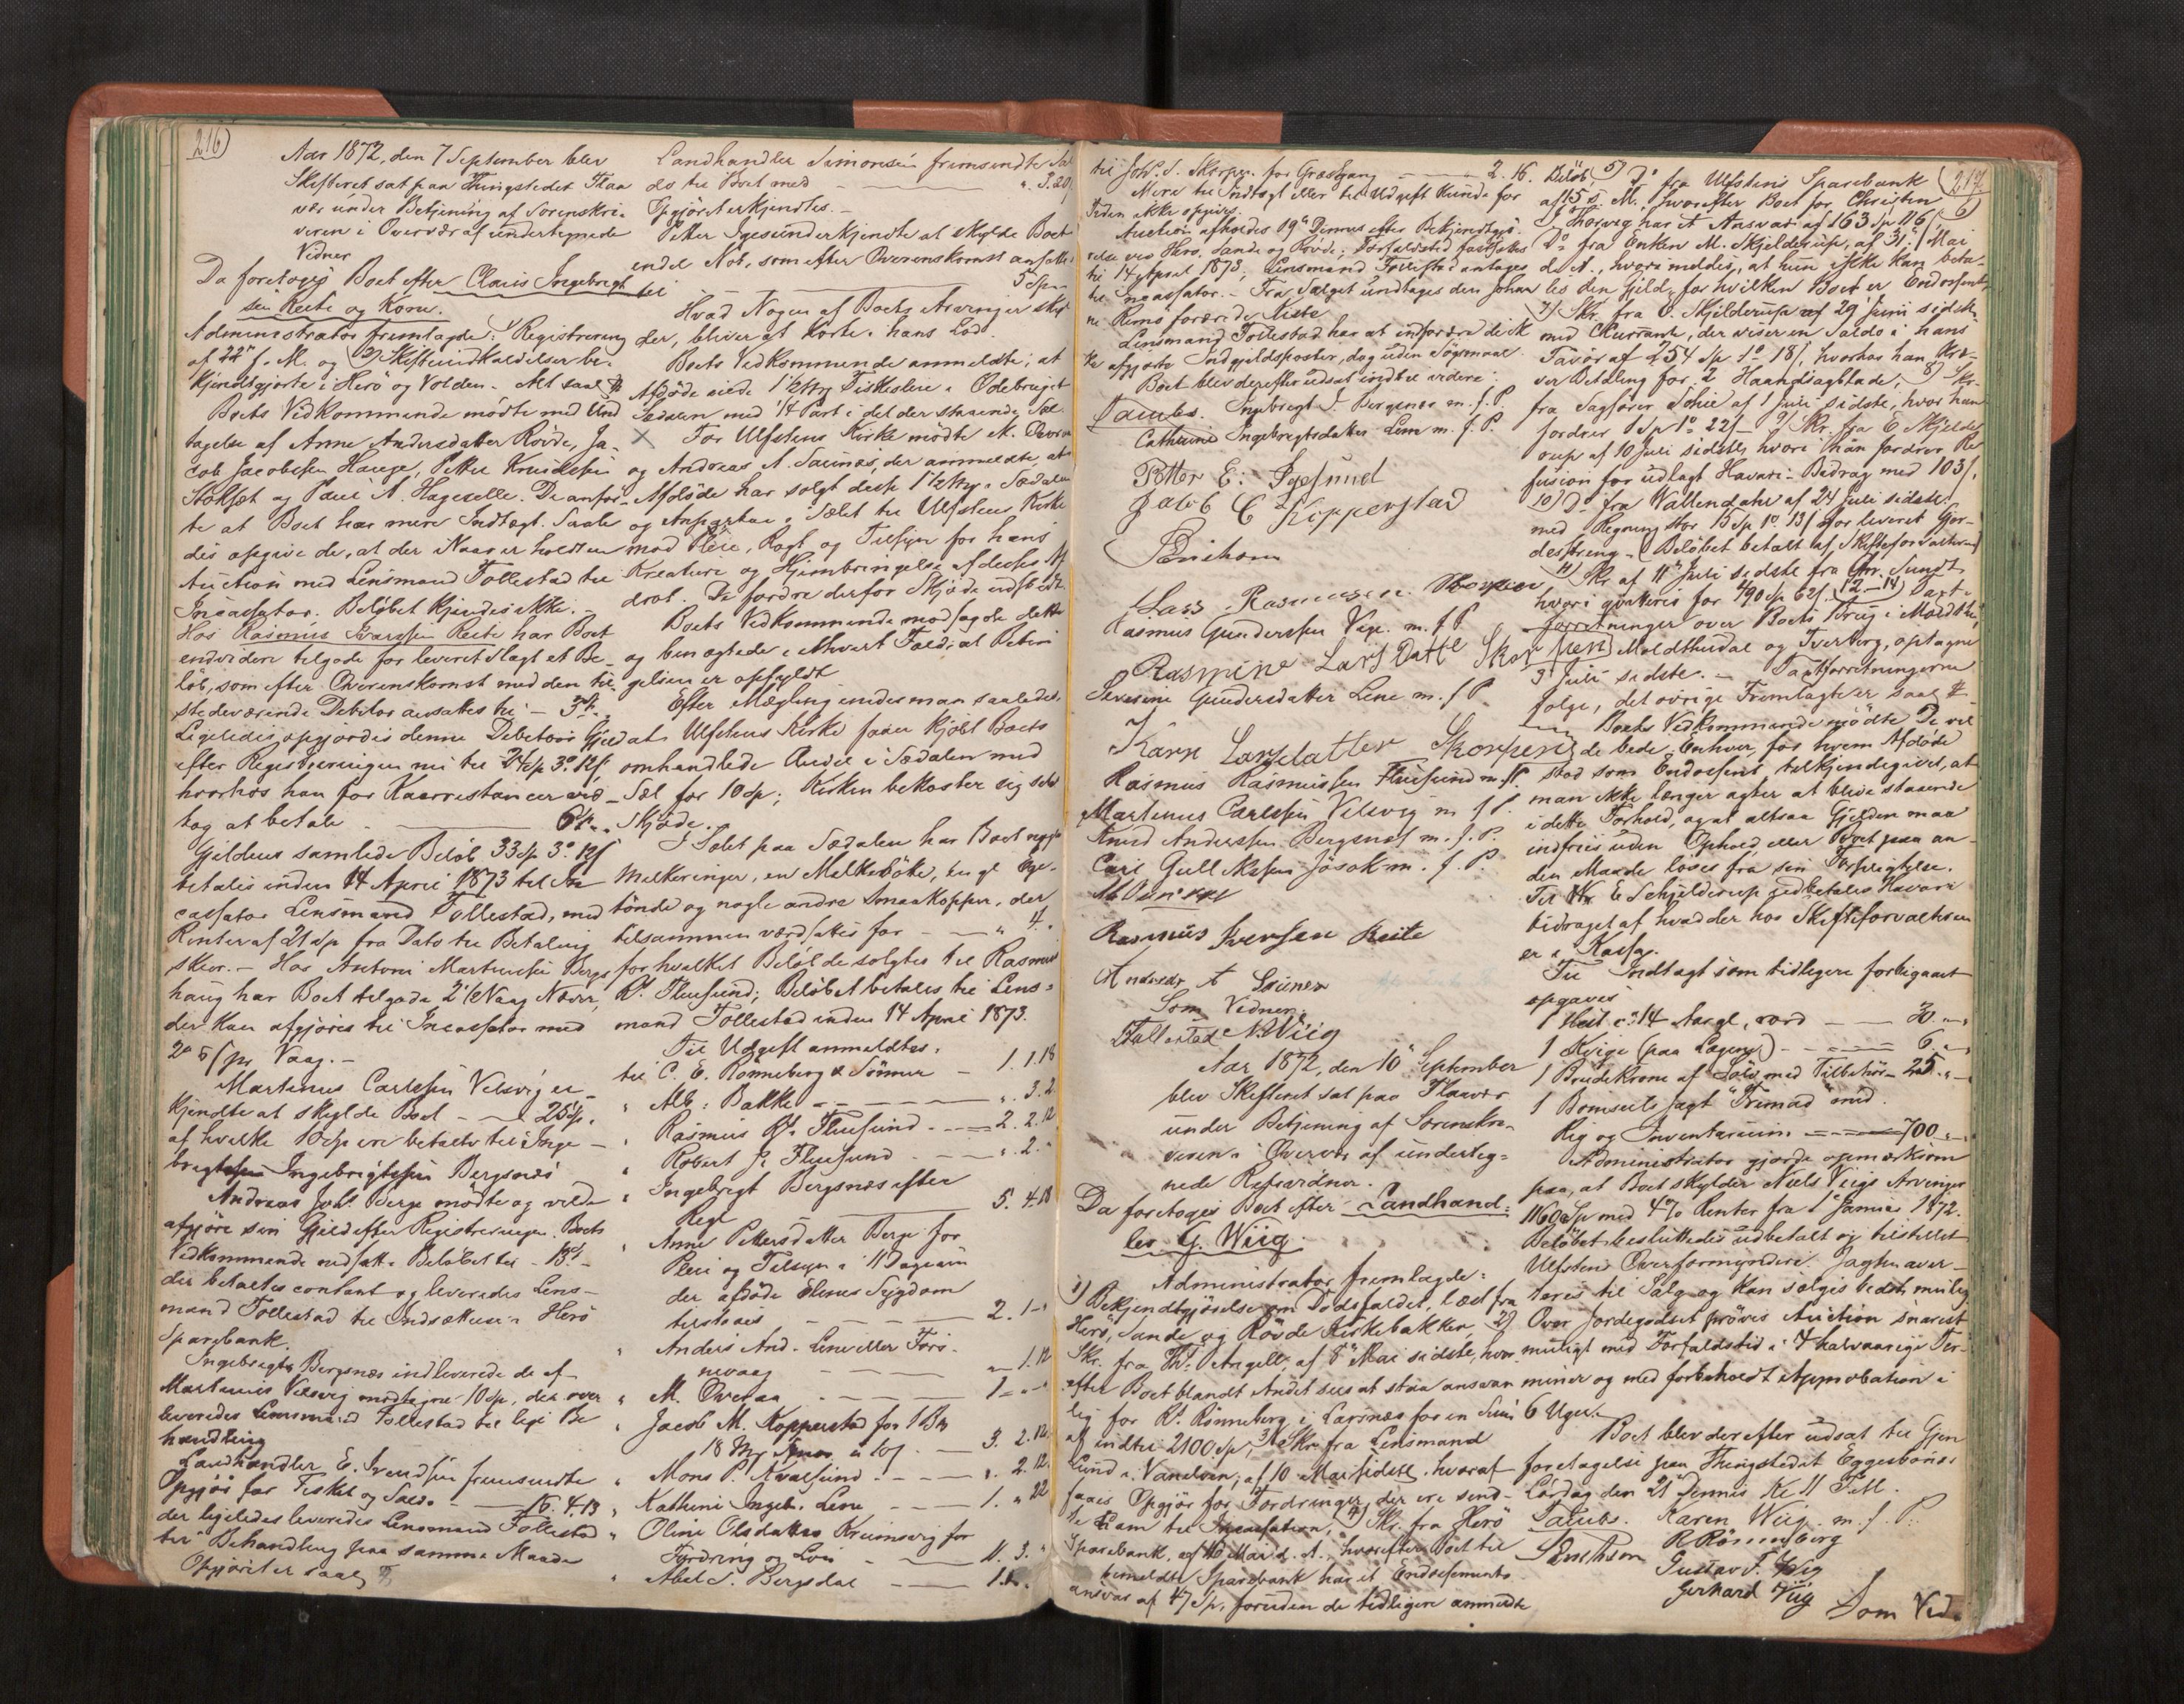 216)
Aar 1872, den 7 September blev
Skifteret sat paa Thingstedet Flaa
vær under Betjening af Sorenskri-
veren i Overvær af undertegnede
Vidner
Da foretoges Boet efter Claus Ingebrigt
sen Reite og Kone.
Administrator fremlagde: 1) Registrering
af 22de f. M. og 2) Skifteindkaldelser be-
kjendtgjorte i Herö og Volden. Alt saal
Boets Vedkommende mödte med Und
tagelse af Anne Andersdatter Rövde, Ja-
cob Jacobsen Hauge, Petter Knudssen
Stokset og Paul A. Hageselle. De anför-
te at Boet har mere Indtægt. Saale
des opgive de, at der i Vaar er holdt en
Auction med Lensmand Follestad til
Incassator. Beløbet kjendes ikke.
Hos Rasmus Iversen Reite har Boet
endvidere tilgode for leveret Slagt et Be-
löb, som efter Overenskomst med den til
stedeværende Debitor ansattes til - 3
Ligeledes opgjordes denne Debitors Gjeld
efter Registreringen nu til 24 Sp 3o 12/
hvorhos han for Kaarrestancer ved
tog at betale - 6
Gjeldens samlede Belöb 33 Sp 3o 12/
betales inden 14 April 1873 til In
cassator Lensmand Follestad, med
Renter af 21 Sp fra Dato til Betaling
skeer. - Hos Antoni Martinussen Bergs
haug har Boet tilgode 2 1/2 Vaag Navar,
der kan afgjöres til Incassator med
2o 5/ pr Vaag. -
Martinus Carlssen Velsvig er-
kjendte at skylde Boet - 25 Sp.
af hvilke 10 Sp ere betalte til Inge-
brigt Ingebrigtssen Bergsnæs
Andreas Johs. Berge mödte og vilde
afgjöre sin Gjeld efter Registreringen. Boets
Vedkommende nedsatte Belöbet til - 13
der betaltes contant og leveredes Lens-
mand Follestad til Indsættelse i Herö
Sparebank.
Ingebrigt Bergsnæs indleverede de af
Martinus Velsvig modtagne 10 Sp, der over
leveredes Lensmand Follestad til lige Be
handling
Landhandler E. Svendsen fremsendte
Opgjör for Fisket og Salg - 16. 4. 13
der ligeledes leveredes Lensmand Follestad
til Behandling paa samme Maade
Opgjöret er saal
Landhandler Simonsen fremsendte Sal
do til Boet med - ". 3. 20/
Opgjöret erkjendtes. -
Petter Igesund erkjendte at skylde Boet
endel Nob, som efter Overenskomst ansatte
til - 5 Sp
Hvad Nogen af Boets Arvinger skyl
der, bliver at korte i hans Lod.
Boets Vedkommende anmeldte, at
Afdöde eiede 1 1/2 Mrg Fiskeleie i Odebruget
Sædalen med 1/4 Part i det der staaende Sæl.
X For Ulfstens Kirke mödte M. Devold
og Andreas A. Saunæs, der anmeldte, at
Afdöde har solgt dette 1 1/2 Mrg i Sædalen
og Anparten i Sælet til Ulfstens Kirke
mod Pleie, Rögt og Tilsyn for hans
Kreature og Hjembringelse af disses Af
drot. De fordre derfor Skjöde udstedt.
Boets Vedkommende modsagde dette
og benegtede i ethvert Fald, at Betin
gelsen er opfyldt
Efter Mægling endes man saaledes,
at Ulfstens Kirke faaer kjöbt Boets
omhandlede Andel i Sædalen med
Sæl for 10 Sp; Kirken bekoster sig selv
Skjöde.
I Sælet paa Sædalen har Boet nogle
Melkeringer, en Melkeböte, en gl Ege-
tönde og nogle andre Smaakopper, der
tilsammen værdsattes for - " 4. "
for hvilket Belöb de solgtes til Rasmus
Rs. Fluesund; Belöbet betales til Lens-
mand Follestad inden 14 April 1873.
Til Udgift anmeldtes:
til C. E. Rönneberg & Sönner - 1. 1. 18
" Alb: Bakke - ". 3. 2
" Rasmus Rs. Fluesund - 2. 2. 12
" Robert Fluesund - ". 2. "
" Ingebrigt Bergsnæs efter
Regn - 5. 4. 18
" Anne Pettersdatter Berge for
Pleie og Tilsyn i 11 Dage i an
der afdöde Elens Sygdom
tilstaaes - 2. 1. "
" Anders And. Lene eller Törs-
nevaag - " 1. 12
" M. Overaa - 1. " "
" Jacob M. Kopperstad for 1 Bpd
18 Mrg Smör - 3. 2. 12
" Mons P. Kvalsund - ". 2. 12
" Kathrine Ingeb. Lene - 1. " 22
" Oline Olsdatter Kreimsvig for
Fordring og Lön - 11. 3. "
" Abel S. Bergsdal - 1.
til Joh. S. Skorpen for Græsgang - 2. 16.
Mere til Indtægt eller til Udgift kunde for
Tiden ikke opgives.
Auction afholdes 19de Dennes efter Bekjendtgjö-
relse ved Herö, Sande og Rövde; Forfaldstid fastsættes
til 14 April 1873; Lensmand Follestad antages
til Incassator. - Fra Salget undtages den Johan
ne Remö forærede Kiste
Lensmand Follestad har at indfordre de ik
ke afgjorte Indgjeldsposter, dog uden Sögsmaal.
Boet blev derefter udsat indtil videre.
Daubs. Ingebrigt I. Bergsnæs m. f. P.
Cathrine Ingebrigtsdatter Lene m. f. P.
Petter E. Igesund
Jakob C Kopperstad
PErichsen
Lars Rasmussen Skorpen
Rasmus Gunderssen Vige m. f. P
Rasmine Lars Datte Skorpen
Severine Gundersdatter Lene m. f. P
Karn Larsdatter Skorpen
Rasmus Rasmussen Fluesund m. f. P
Martinus Carlssen Velsvig m. f. P.
Knud Anderssen Bergsnæs m. f. P.
Carl Gulliksen Jösok m. f. P.
Rasmus Iversen Reite
Andreas A Saunes
Som Vidner
Follestad N. Wiig
Aar 1872, den 10de September
blev Skifteret sat paa Flaavær
under Betjening af Sorenskri-
veren i Overvær af underteg-
nede Retsvidner.
Da foretoges Boet efter Landhand-
ler G. Wiig.
Administrator fremlagde:
1) Bekjendtgjörelse om Dödsfaldet, læst fra
Herö, Sande og Rövde Kirkebakker, 2)
Skr. fra Th. Angell, af 8de Mai sidste, hvor
efter Boet blandt Andet sees at staa ansvar
lig for Rs. Rönneberg i Larsnæs for en Sum
af indtil 2100 Sp. 3) Skr. fra Lensmand
Lund i Vanelven, af 10 Mai sidste, hvoraf
faaes Opgjör for Fordringer, der ere send-
te ham til Incassation, 4) Skr. fra Herö
Sparebank, af 16 Mai d. A., hvorefter Boet til
bemeldte Sparebank har et Endossements-
ansvar af 47 Sp, foruden de tidligere anmeldte
Belöb, 5) Do fra Ulfstens Sparebank (217
af 15 s. M. hvorefter Boet for Christen
J Thosvig har et Ansvar af 163 Sp 116/, 6)
Do fra Enken M. Skjelderup, af 31te Mai
d. A., hvori meldes, at hun ikke kan beta-
les den Gjeld, for hvilken Boet er Endossent,
7) Skr. fra E. Skjelderup af 29 Juni sidst.
med Kurrant, der viser en Saldo i hans
Favör af 254 Sp 1o 18/, hvorhos han kræ-
ver Betaling for 2 Haandsagblade, 8) Skr.
fra Sagförer Sohie af 1 Juli sidste, hvor han
fordrer 1 Sp 1o 22/ - 9) Skr. fra E Skjeld
erup af 10 Juli sidste, hvori han fordrer Re
fusion for udlagt Havari-Bidrag med 103/,
10) Do fra Wallendahl af 24 Juli sidste,
med Regning stor 15 Sp 1o 13/ for leveret Gjor-
desstreng - (Belöbet betalt af Skifteforvalteren)
11) Skr. af 11te Juli sidste fra Chr. Sundt
hvori qvitteres for 490 Sp 62/. 12-14) Taxt-
forretninger over Boets Brug i Moldskre
Moldthudal og Tverberg, optagne
3 Juli sidste. - Taxtforretningerne
fölge, det övrige Fremlagte er saal
Boets Vedkommende mödte. De vil
de bede Enhver, for hvem Afdöde
stod som Endossent, tilkjendegivet, at
man ikke længer agter at blive staaende
i dette Forhold, og at altsaa Gjelden maa
indfries uden Ophold eller Boet paa an-
den Maade löses fra sin Forpligtelse.
Til E Schjelderup godbetales Havari
bidraget af hvad der hos Skifteforvalteren
er i Kassa.
Til Indtægt som tidligere forbigaaet
opgaves
1 Hest c: 14 Aar gl, værd - 30. " "
1 Kvige (paa Lagene) - 6. "
1 Brudekrone af Sölv med Tilbehör - 25. " "
1 Bomseils Jagt "Trimad" med
Rig og Inventarium - 700. " "
Administrator gjorde opmærksom
paa, at Boet skylder Niels Viigs Arvinger
1160 Sp med 4% Renter fra 1ste Januar 1872.
Belöbet besluttedes udbetalt og tilstillet
Ulfsten Overformynderi. Jagten aver-
teres til Salg og kan sælges bedst mulig
Over Jordegodset pröves Auction snarest
muligt med Forfaldstid i 4 halvaarige Ter-
miner og med forbeholdt Approbation i
6 Uger.
Boet blev derefter udsat til Gjen
foretagelse paa Thingstedet Eggesbönes
Lördag den 21 Dennes Kl 11 FM.
Daubs. Karen Wiig. m. f. P.
PErichsen R Rönneberg
Gustav F. Wiig
Gerhard Viig Som Vid-